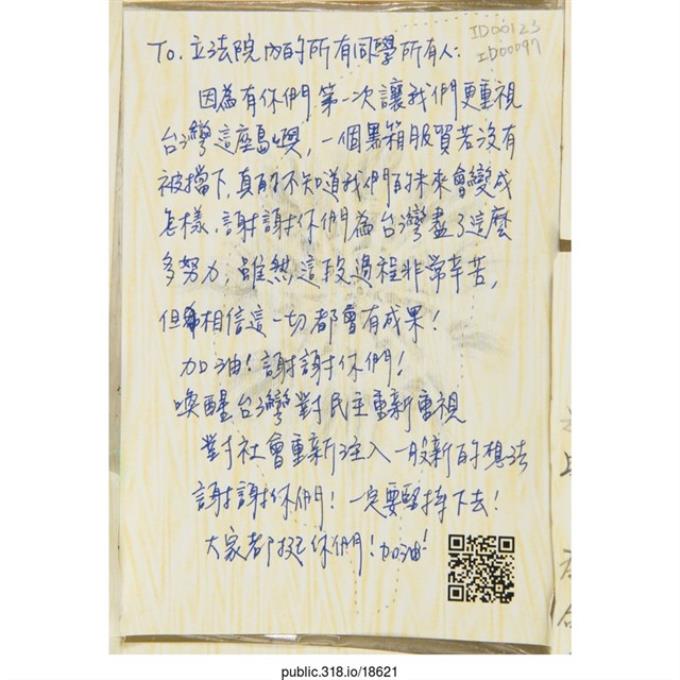 ID00123
ID00097
To. 立法院內的所有同學所有人:
因為有你們第一次讓我們更重視
台灣這座島嶼,一個黑箱服貿若沒有
被擋下,真的不知道我們的未來會變成
怎樣,謝謝你們為台灣盡了這麼
多努力,雖然這段過程非常辛苦,
但相信這一切都會有成果!
加油!謝謝你們!
喚醒台灣對民主重新重視
對社會重新注入一股新的想法
謝謝你們!一定要堅持下去!
大家都挺你們!加油!
public.318.io/18621